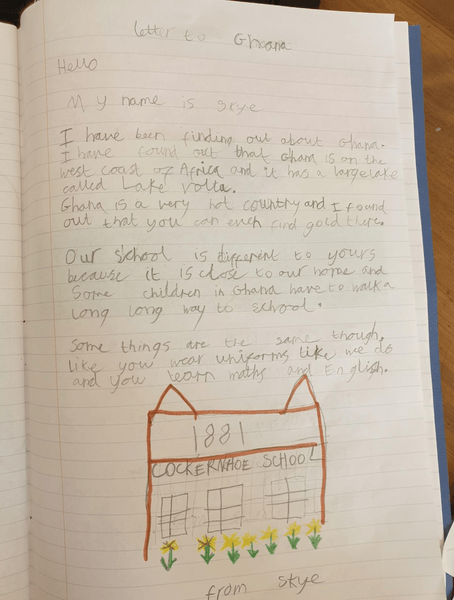 letter to Ghana
Hello
My name is Skye
I have been finding out about Ghana.
I have found out that Ghana is on the
west coast of Africa and it has a large lake
called Lake Volta.
Ghana is a very hot country and I found
out that you can even find gold there.
Our school is different to yours
because it is close to our home and
Some children in Ghana have to walk a
long long way to school.
Some things are the same though,
like you wear uniforms like we do
and you learn maths and English.
1881
COCKERNHOE SCHOOL
from skye